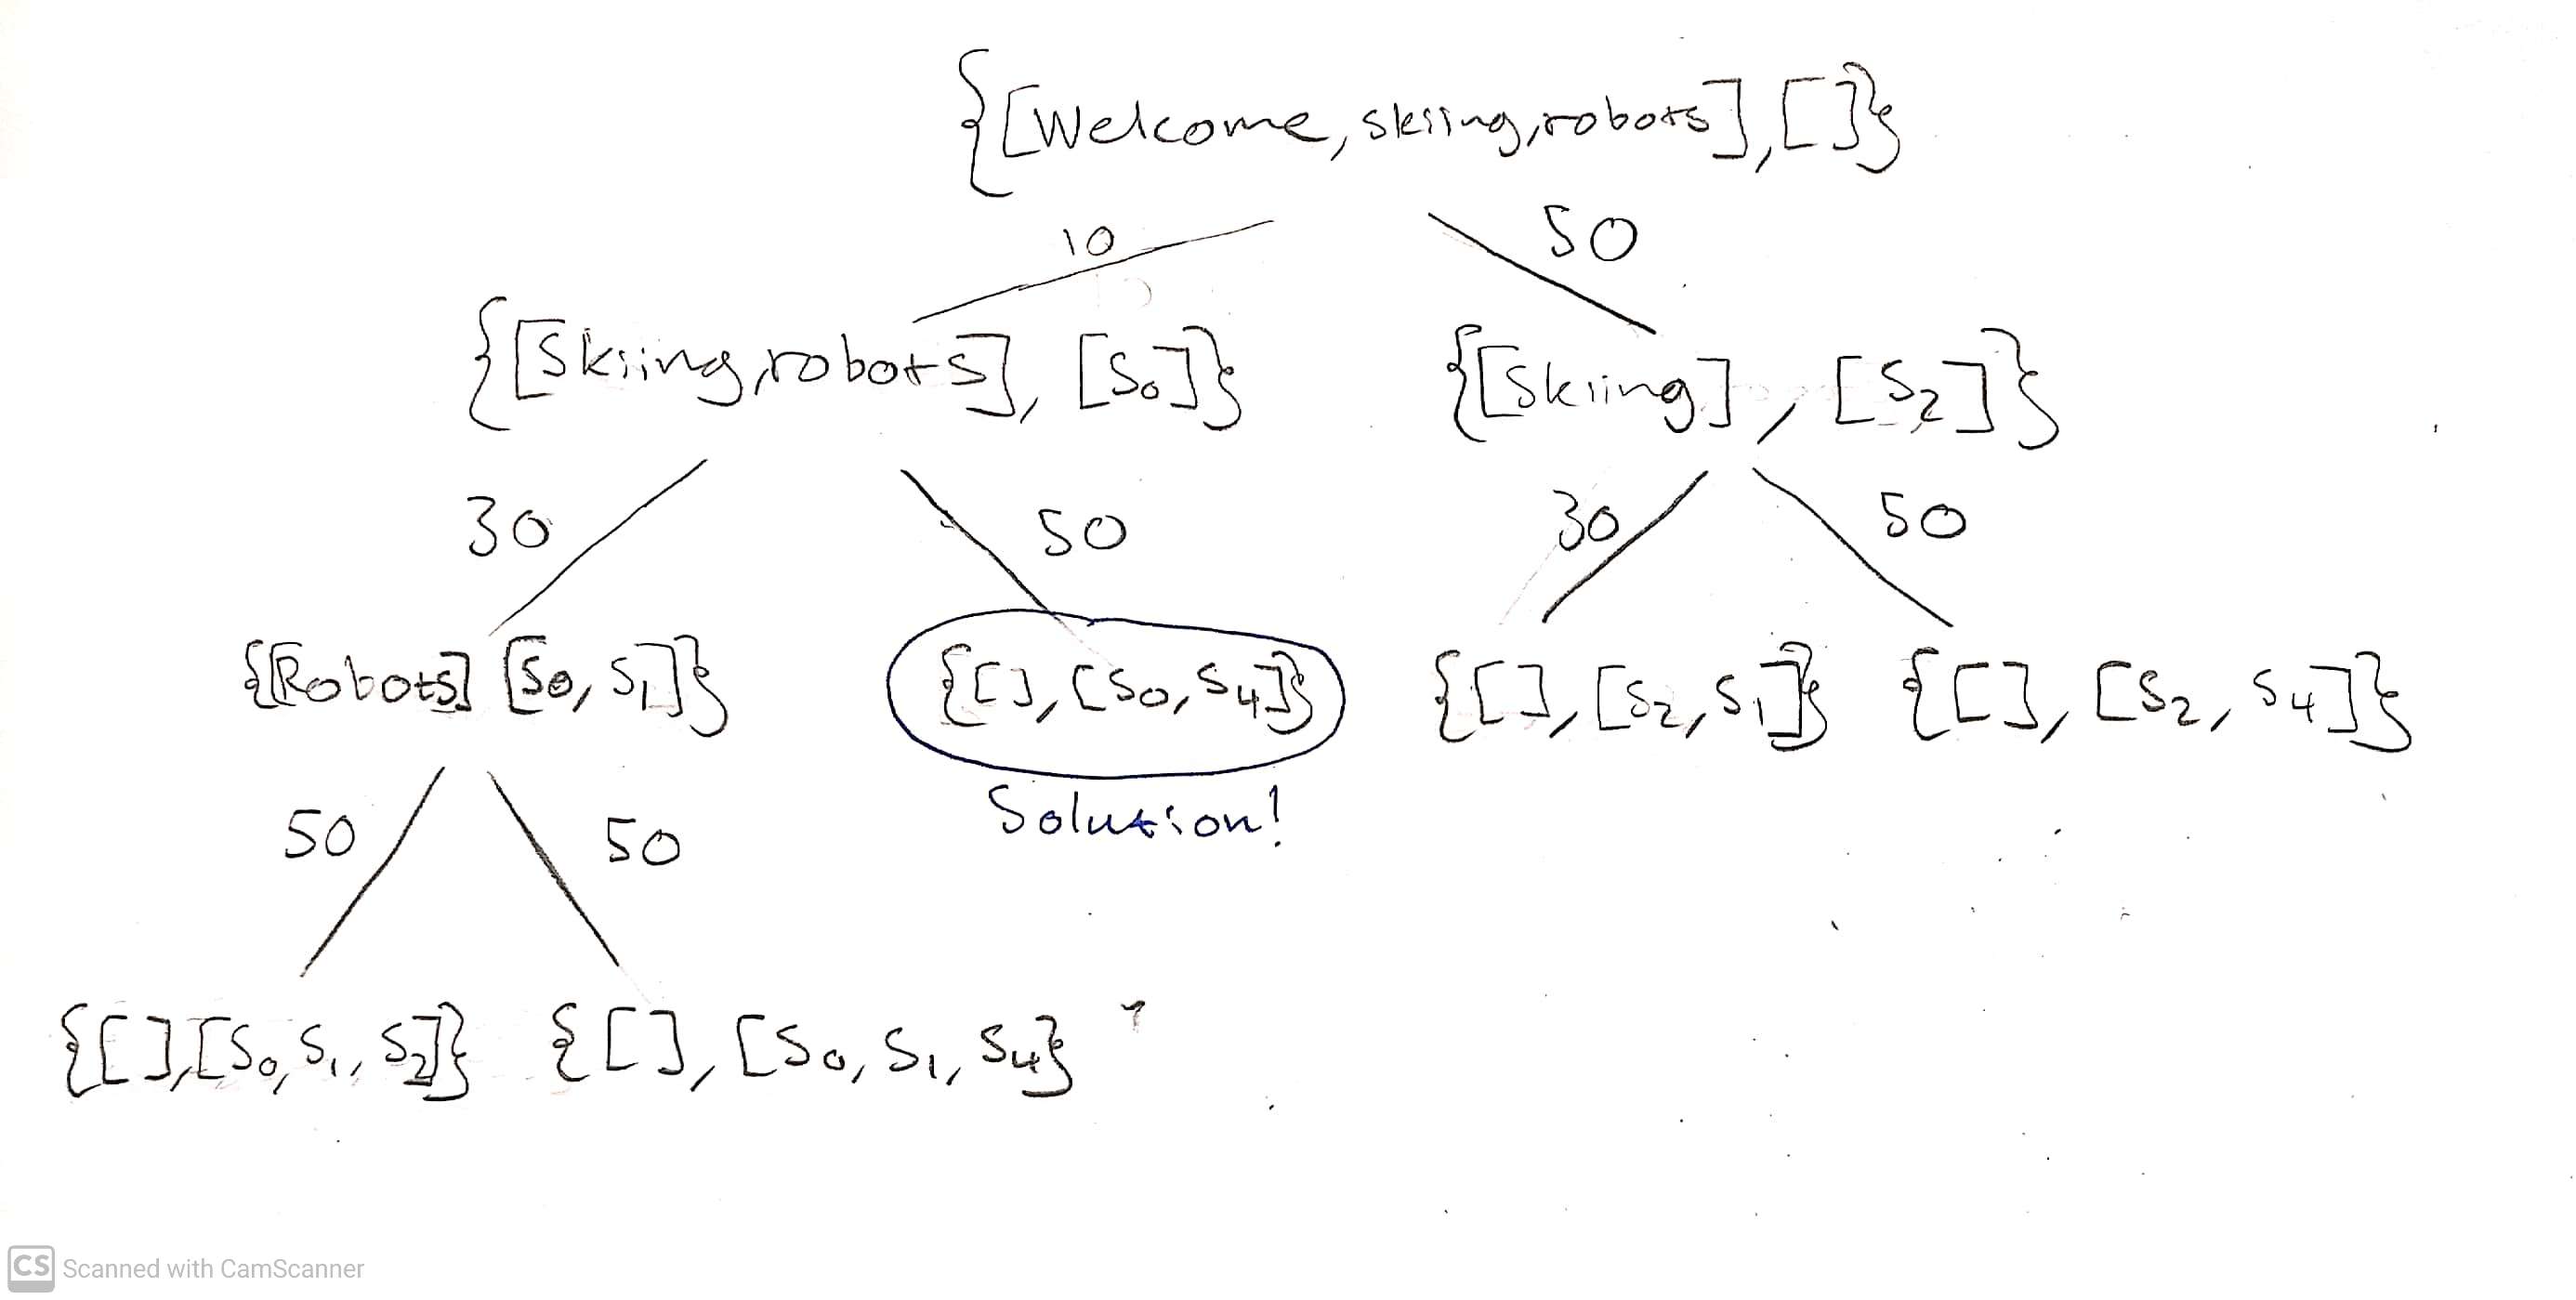 {[Welcome, skiing, robots], []}
10 50
{[Skiing, robots], [S₀]} {[Skiing], [S₂]}
30 50 30 50
{[Robots] [S₀, S₁]} {[], [S₀, S₄]} {[], [S₂, S₁]} {[], [S₂, S₄]}
Solution!
50 50
{[], [S₀, S₁, S₂]} {[], [S₀, S₁, S₄}
CS Scanned with CamScanner